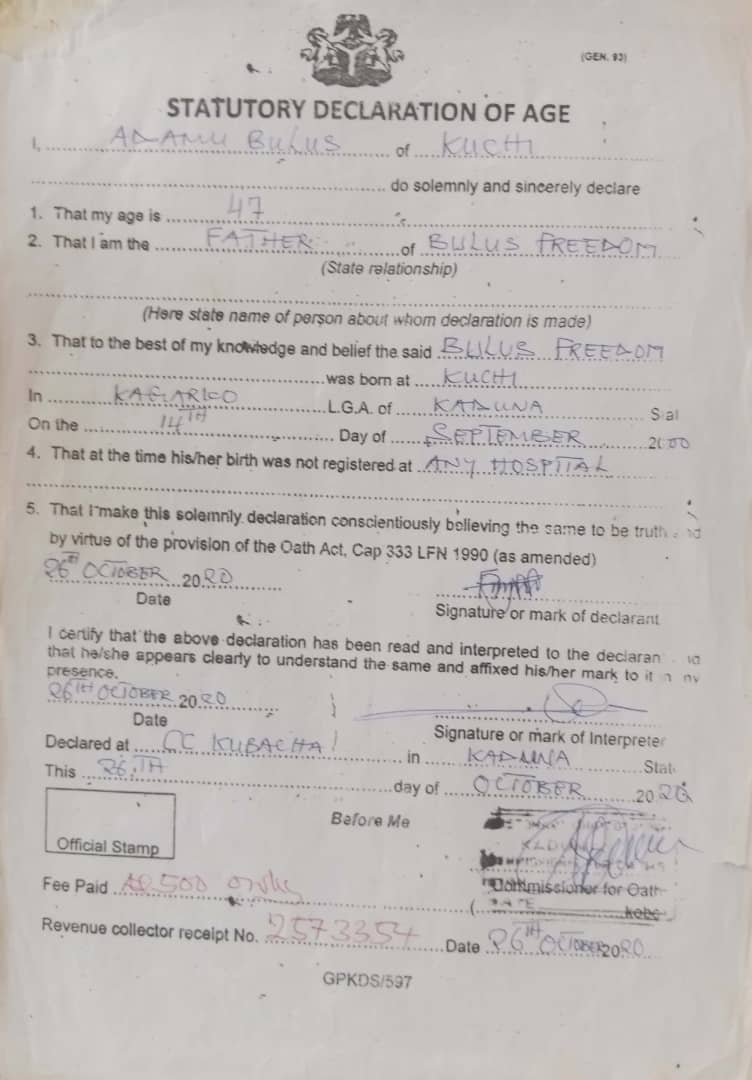 (GEN. 93)
STATUTORY DECLARATION OF AGE
I, ADAMU BULUS of KUCHI
do solemnly and sincerely declare
1. That my age is 47
2. That I am the FATHER of BULUS FREEDOM
(State relationship)
(Here state name of person about whom declaration is made)
3. That to the best of my knowledge and belief the said BULUS FREEDOM
was born at KUCHI
In KAGARKO L.G.A. of KADUNA Stat
On the 14TH Day of SEPTEMBER 2000
4. That at the time his/her birth was not registered at ANY HOSPITAL
5. That I make this solemnly declaration conscientiously believing the same to be truth and
by virtue of the provision of the Oath Act, Cap 333 LFN 1990 (as amended)
26th OCTOBER 2020
Date
Signature or mark of declarant
I certify that the above declaration has been read and interpreted to the declaran
that he/she appears clearly to understand the same and affixed his/her mark to it in my
presence.
26TH OCTOBER 2020
Date
Signature or mark of Interpreter
Declared at CC KUBACHA in KADUNA Stat
This 26TH day of OCTOBER 2020
Before Me
Official Stamp
Commissioner for Oath
DATE
Fee Paid ₦500 only
Revenue collector receipt No. 2573354 Date 26TH OCTOBER 2020
GPKDS/597